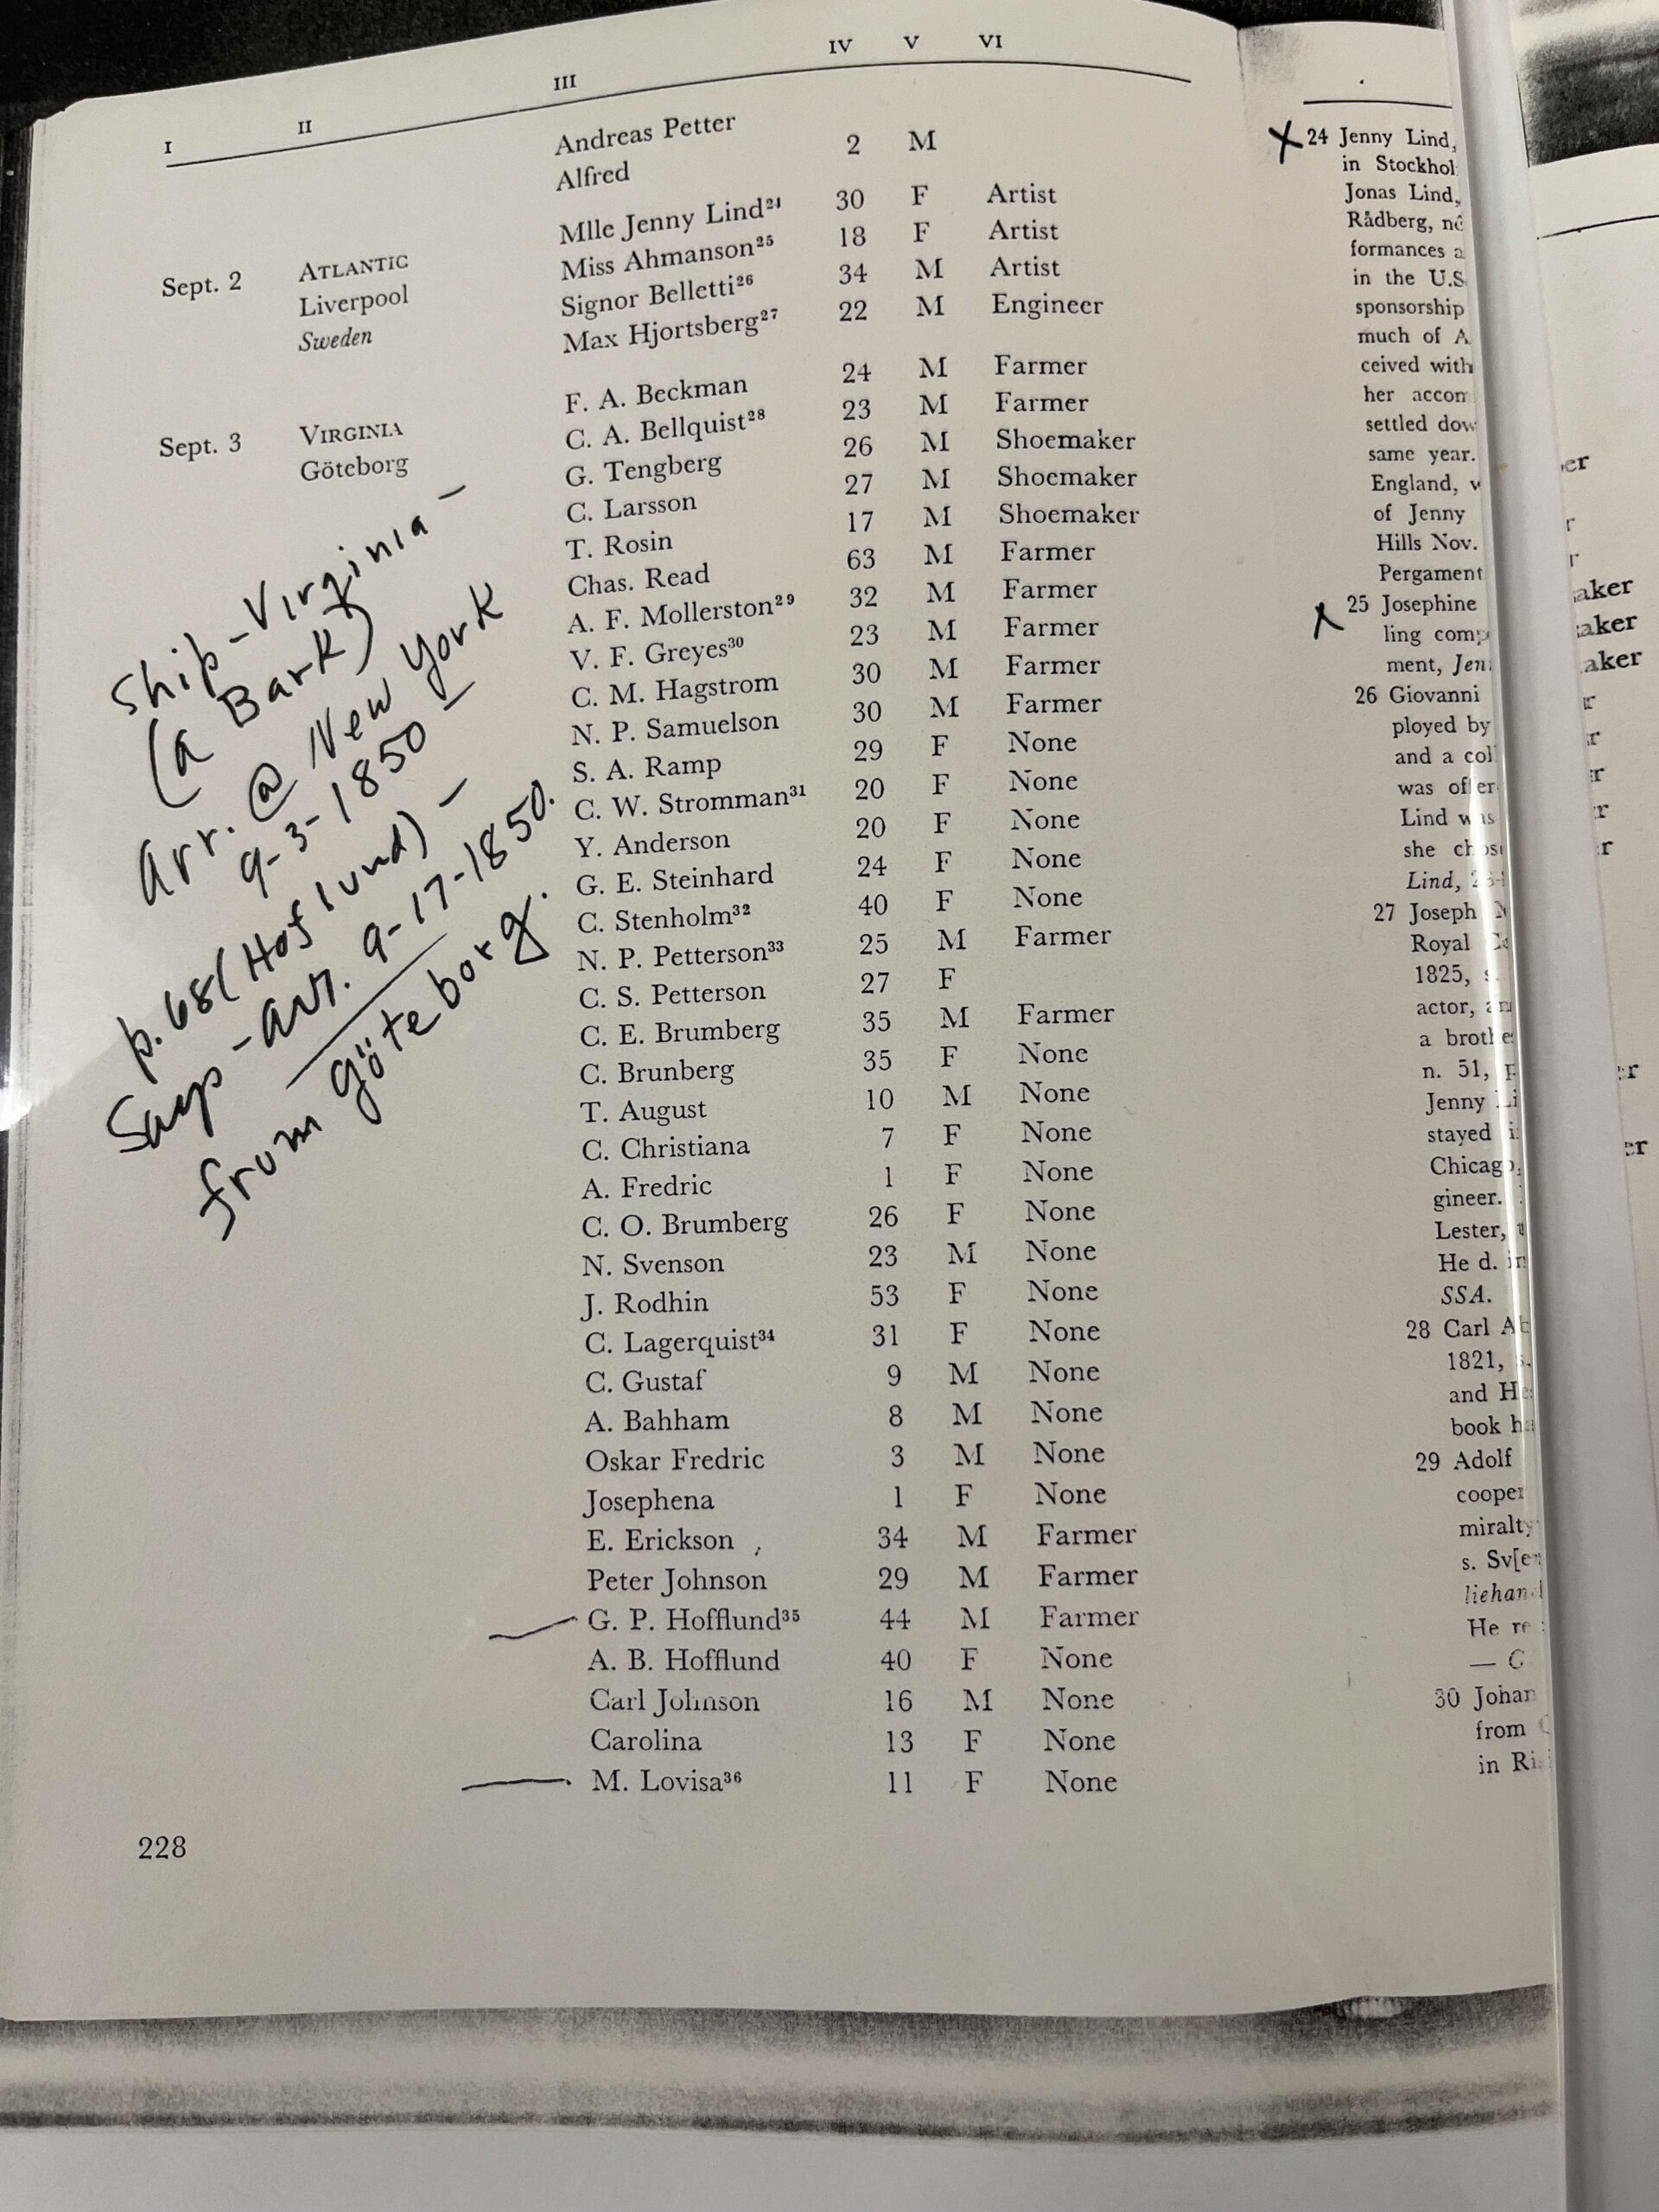 I II III IV V VI
Andreas Petter
Alfred 2 M
Mlle Jenny Lind²⁴ 30 F Artist
Sept. 2 ATLANTIC Miss Ahmanson²⁵ 18 F Artist
Liverpool Signor Belletti²⁶ 34 M Artist
Sweden Max Hjortsberg²⁷ 22 M Engineer
F. A. Beckman 24 M Farmer
Sept. 3 VIRGINIA C. A. Bellquist²⁸ 23 M Farmer
Göteborg G. Tengberg 26 M Shoemaker
C. Larsson 27 M Shoemaker
T. Rosin 17 M Shoemaker
Chas. Read 63 M Farmer
A. F. Mollerston²⁹ 32 M Farmer
V. F. Greyes³⁰ 23 M Farmer
C. M. Hagstrom 30 M Farmer
N. P. Samuelson 30 M Farmer
S. A. Ramp 29 F None
C. W. Stromman³¹ 20 F None
Y. Anderson 20 F None
G. E. Steinhard 24 F None
C. Stenholm³² 40 F None
N. P. Petterson³³ 25 M Farmer
C. S. Petterson 27 F
C. E. Brumberg 35 M Farmer
C. Brunberg 35 F None
T. August 10 M None
C. Christiana 7 F None
A. Fredric 1 F None
C. O. Brumberg 26 F None
N. Svenson 23 M None
J. Rodhin 53 F None
C. Lagerquist³⁴ 31 F None
C. Gustaf 9 M None
A. Bahham 8 M None
Oskar Fredric 3 M None
Josephena 1 F None
E. Erickson 34 M Farmer
Peter Johnson 29 M Farmer
G. P. Hofflund³⁵ 44 M Farmer
A. B. Hofflund 40 F None
Carl Johnson 16 M None
Carolina 13 F None
M. Lovisa³⁶ 11 F None
228
Ship-Virginia-
(a Bark)
Arr. @ New York
9-3-1850 -
p. 68 (Hoflund) -
Says - arr. 9-17-1850.
from Göteborg.
X 24 Jenny Lind,
in
Jonas Lind,
Rådberg,
formances
in the U.S.
sponsorship
much of
ceived with
her
settled
same year.
England,
of Jenny
Hills Nov.
Pergament
X 25 Josephine
ling
ment,
26 Giovanni
ployed by
and a
was
Lind was
she
Lind,
27 Joseph
Royal
1825,
actor,
a
n. 51,
Jenny
stayed
Chicago,
gineer.
Lester,
He d.
SSA.
28 Carl
1821,
and
book
29 Adolf
cooper
s.
He
— G
30 Johan
from
in